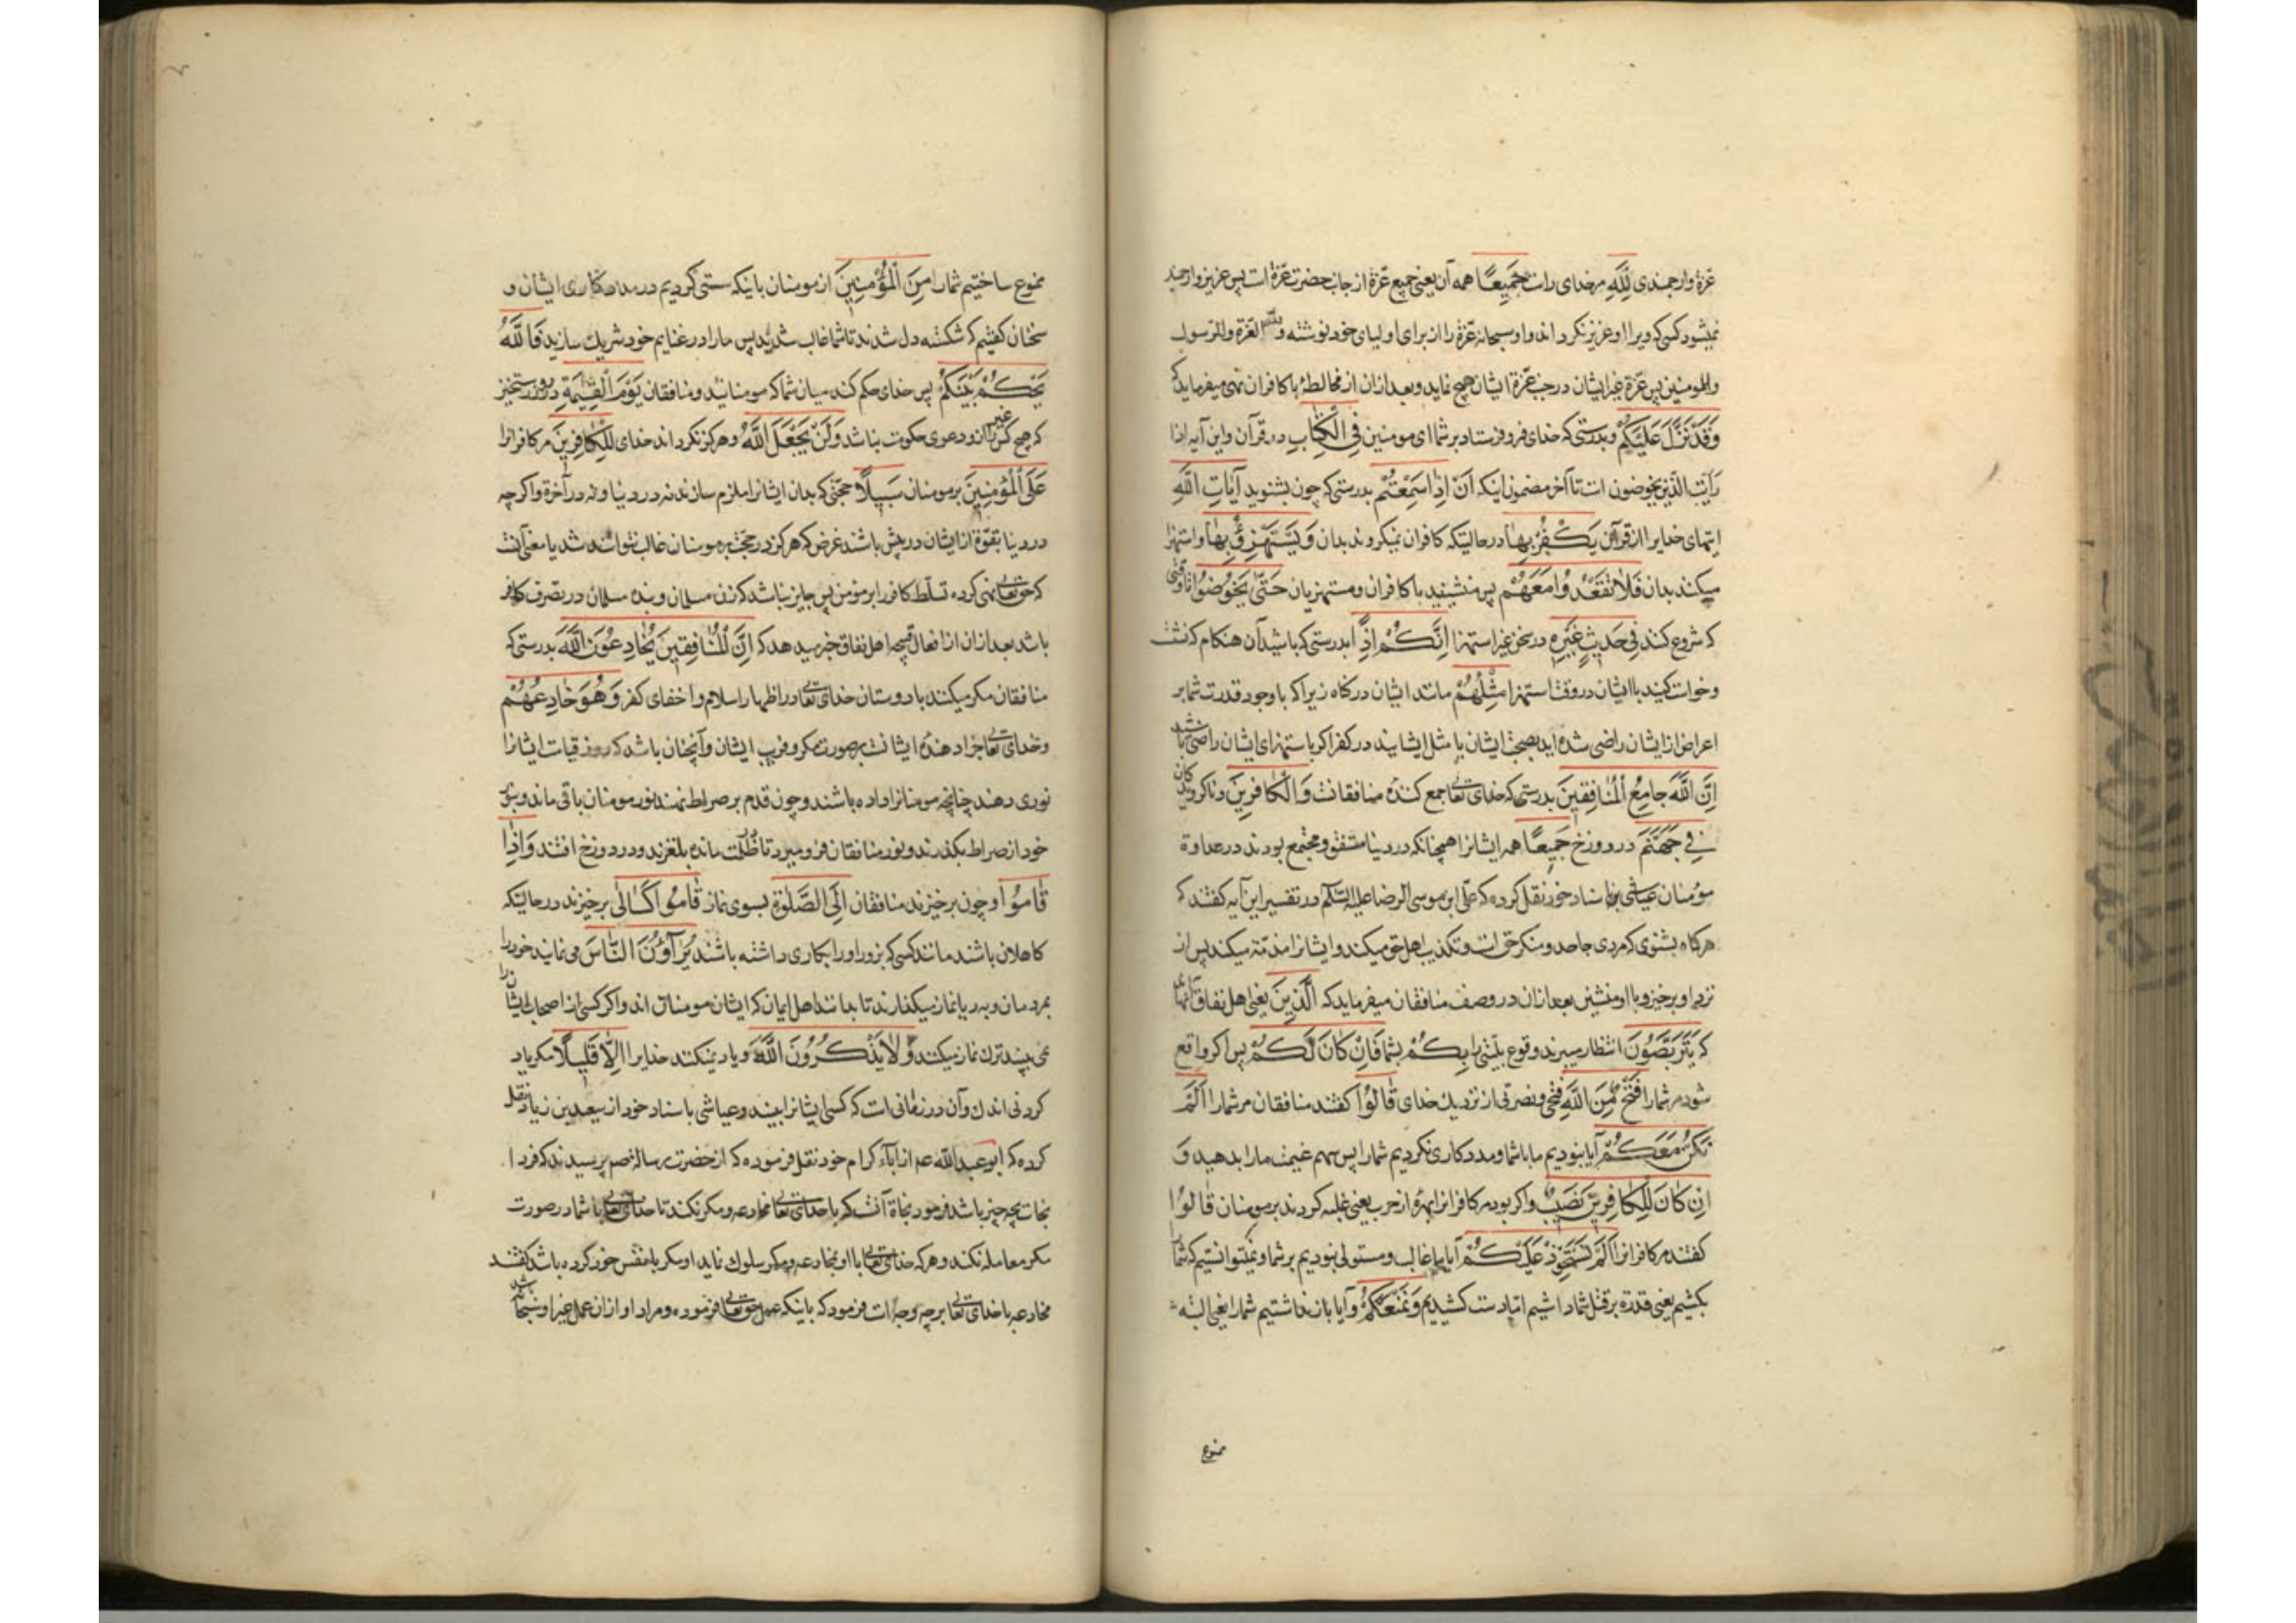 عزة وارجمندی لِلّٰهِ مر خدای راست جَمِيعًا همه آن یعنی جمیع عزة از جانب حضرت عزة است پس عزیز و ارجمند
نمیشود کسی که ویرا او عزیز نکرداند و او سبحانه عزة را از برای اولیای خود نوشته و لله العزة و للرسول
و للمومنین پس عزة غیر ایشان در جنب عزة ایشان هیچ نماید و بعد ازان از مخالطهٔ با کافران نهی میفرماید که
وَقَدْ نَزَّلَ عَلَيْكُمْ و بدرستی که خدای فرو فرستاد بر شما ای مومنین فِي الْكِتَابِ در قرآن و این آیه اذا
رایت الذین یخوضون است تا آخر مضمون اینکه اَنْ اِذَا سَمِعْتُمْ بدرستی که چون بشنوید آيَاتِ اللّٰهِ
ایتهای خدایرا از قرآن يَكْفُرُ بِهَا در حالتیکه کافران نمیکروند بدان وَيُسْتَهْزَؤُ بِهَا و استهزا
میکنند بدان فَلَا تَقْعُدُوا مَعَهُمْ پس منشینید با کافران و مستهزیان حَتّٰى يَخُوضُوا تا وقتی
که شروع کنند فِي حَدِيثٍ غَيْرِهِ در سخن غیر استهزا اِنَّكُمْ اِذًا بدرستی که باشید آن هنکام که نشست
و خواست کنید با ایشان در وقت استهزا مِثْلُهُمْ مانند ایشان در کناه زیرا که با وجود قدرت شما بر
اعراض از ایشان راضی شده اید بصحبت ایشان یا مثل ایشانید در کفر اکر باستهزای ایشان راضی باشید
اِنَّ اللّٰهَ جَامِعُ الْمُنَافِقِينَ بدرستی که خدای تعالی جمع کنندهٔ منافقانست وَالْكَافِرِينَ و ناکرویدکان
فِي جَهَنَّمَ در دوزخ جَمِيعًا همه ایشانرا همچنانکه در دنیا متفق و مجتمع بودند در عداوة
مؤمنان عیاشی باسناد خود نقل کرده که علی ابن موسی الرضا علیه السّلام در تفسیر این آیه کفتند که
هر کاه بشنوی که مردی جاحد و منکر حق است و تکذیب اهل حق میکند و ایشانرا مذمّة میکند پس از
نزد او برخیز و با او منشین بعد ازان در وصف منافقان میفرماید که اَلَّذِينَ یعنی اهل نفاق آنهااند
که يَتَرَبَّصُونَ انتظار میبرند وقوع بلیتی را بِكُمْ بشما فَاِنْ كَانَ لَكُمْ پس اکر واقع
شود مر شما را فَتْحٌ مِنَ اللّٰهِ فتحی و نصرتی از نزدیک خدای قَالُوا کفتند منافقان مر شما را اَلَمْ
نَكُنْ مَعَكُمْ آیا نبودیم ما با شما و مددکاری نکردیم شما را پس سهم غنیمت ما را بدهید وَ
اِنْ كَانَ لِلْكَافِرِينَ نَصِيبٌ و اکر بود مر کافرانرا بهرهٔ از حرب یعنی غلبه کردند بر مومنان قَالُوا
کفتند مر کافرانرا اَلَمْ نَسْتَحْوِذْ عَلَيْكُمْ آیا ما غالب و مستولی نبودیم بر شما و نمیتوانستیم که شما را
بکشیم یعنی قدرة بر قتل شما داشتیم اما دست کشیدیم وَنَمْنَعْكُمْ و آیا باز نداشتیم شما را یعنی البته
ممنوع
ممنوع ساختیم شما را مِنَ الْمُؤْمِنِينَ از مومنان باینکه سستی کردیم در مددکاری ایشان و
سخنان کفتیم که شکسته دل شدند تا شما غالب شدید پس ما را در غنایم خود شریک سازید فَاللّٰهُ
يَحْكُمُ بَيْنَكُمْ پس خدای حکم کند میان شما که مومنانید و منافقان يَوْمَ الْقِيٰمَةِ در روز رستخیز
که هیچ کس را غیر آن و دعوی حکومت نباشد وَلَنْ يَجْعَلَ اللّٰهُ و هرکز نکرداند خدای لِلْكَافِرِينَ مر کافرانرا
عَلَى الْمُؤْمِنِينَ بر مومنان سَبِيلًا حجّتی که بدان ایشانرا ملزم سازند نه در دنیا و نه در آخرة و اکرچه
در دنیا بقوّة از ایشان در پیش باشند غرض که هرکز در حجّت بر مومنان غالب نتوانند شد یا معنی آنست
که حق تعالی نهی کرده تسلّط کافر را بر مومن پس جایز نباشد که زن مسلمان و بنده مسلمان در تصرف کافر
باشد بعد ازان از افعال قبیحه اهل نفاق خبر میدهد که اِنَّ الْمُنَافِقِينَ يُخَادِعُونَ اللّٰهَ بدرستی که
منافقان مکر میکنند با دوستان خدای تعالی در اظهار اسلام و اخفای کفر وَهُوَ خَادِعُهُمْ
و خدای تعالی جزا دهندهٔ ایشانست بر صورت مکر و فریب ایشان و آنچنان باشد که روز قیامت ایشانرا
نوری دهند چنانچه مومنانرا داده باشند و چون قدم بر صراط نهند نور مومنان باقی ماند و بنور
خود از صراط بکذرند و نور منافقان فرو میرد تا در ظلمت مانده بلغزند و در دوزخ افتند وَاِذَا
قَامُوا و چون برخیزند منافقان اِلَى الصَّلٰوةِ بسوی نماز قَامُوا كُسَالٰى برخیزند در حالتیکه
کاهلان باشند مانند کسی که بزور او را بکاری داشته باشند يُرَآؤُنَ النَّاسَ می نمایند خود را
بمردمان و به ریا نماز میکذارند تا بدانند اهل ایمان که ایشان مومنان اند و اکر کسی از اصحاب ایشانرا
نمی بینند ترک نماز میکنند وَلَا يَذْكُرُونَ اللّٰهَ و یاد نمیکنند خدایرا اِلَّا قَلِيلًا مکر یاد
کردنی اندک و آن در زمانی است که کسی ایشانرا بیند و عیاشی باسناد خود از سعید بن زیاد نقل
کرده که ابو عبد الله عم از اباء کرام خود نقل فرموده که از حضرت رسالة صم پرسیدند که فردا
نجات بچه چیز باشد فرمود نجاة آنست که با خدای تعالی مخادعه و مکر نکند تا خدای تعالی با شما در صورت
مکر معامله نکند و هر که خدای تعالی با او مخادعه و مکر سلوک نماید او مکر با نفس خود کرده باشد کفتند
مخادعه با خدای تعالی بر چه وجه است فرمود که باینکه عمل حق تعالی فرموده و مراد او ازان عمل غیر او سبحانه باشد